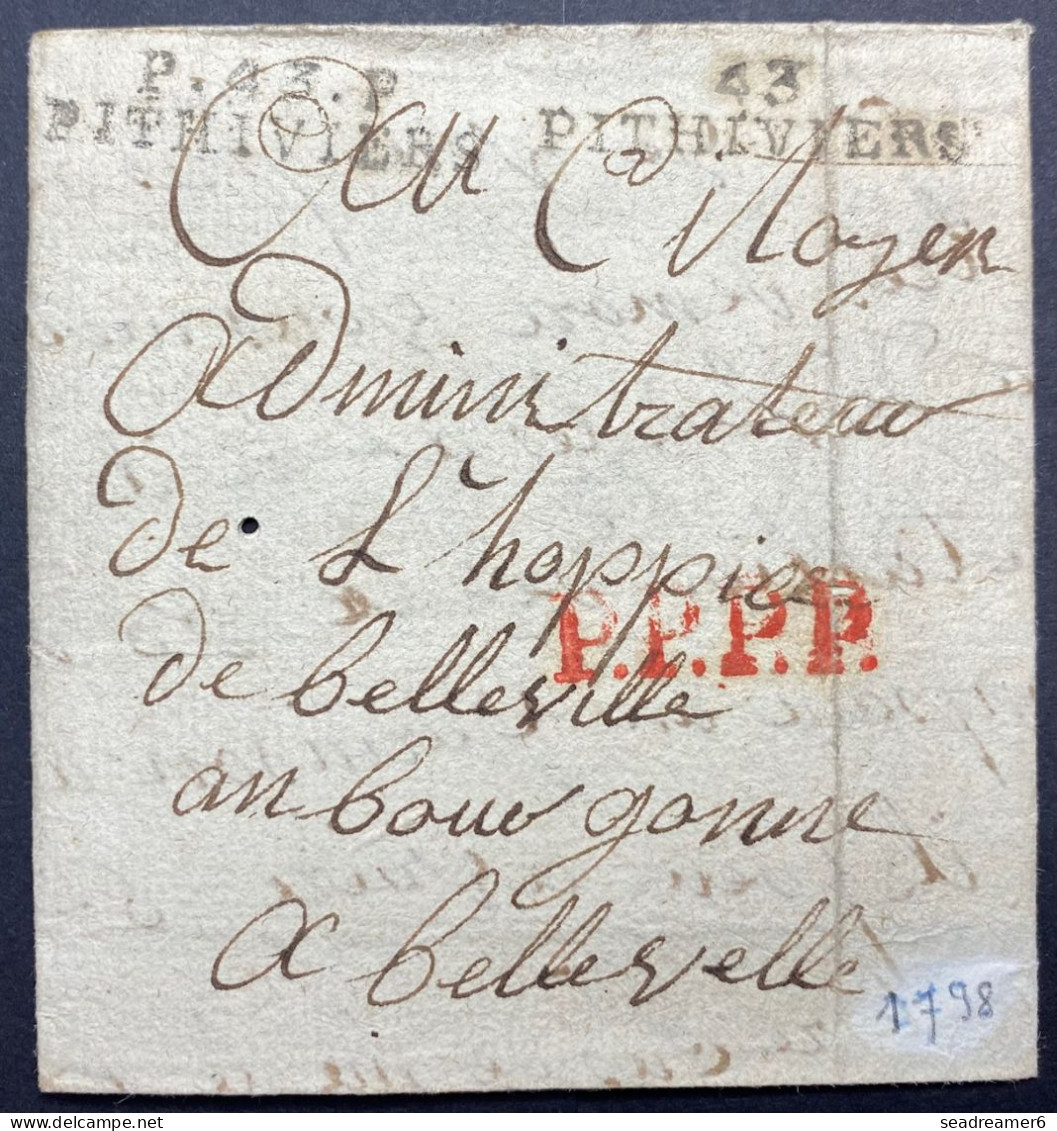 P.43.P
PITHIVIERS
43
PITHIVIERS
Au Citoyen
administrateur
de L'hoppice
P.P.P.P.
de belleville
an bourgonne
a bellevelle
1798
seadreamer6